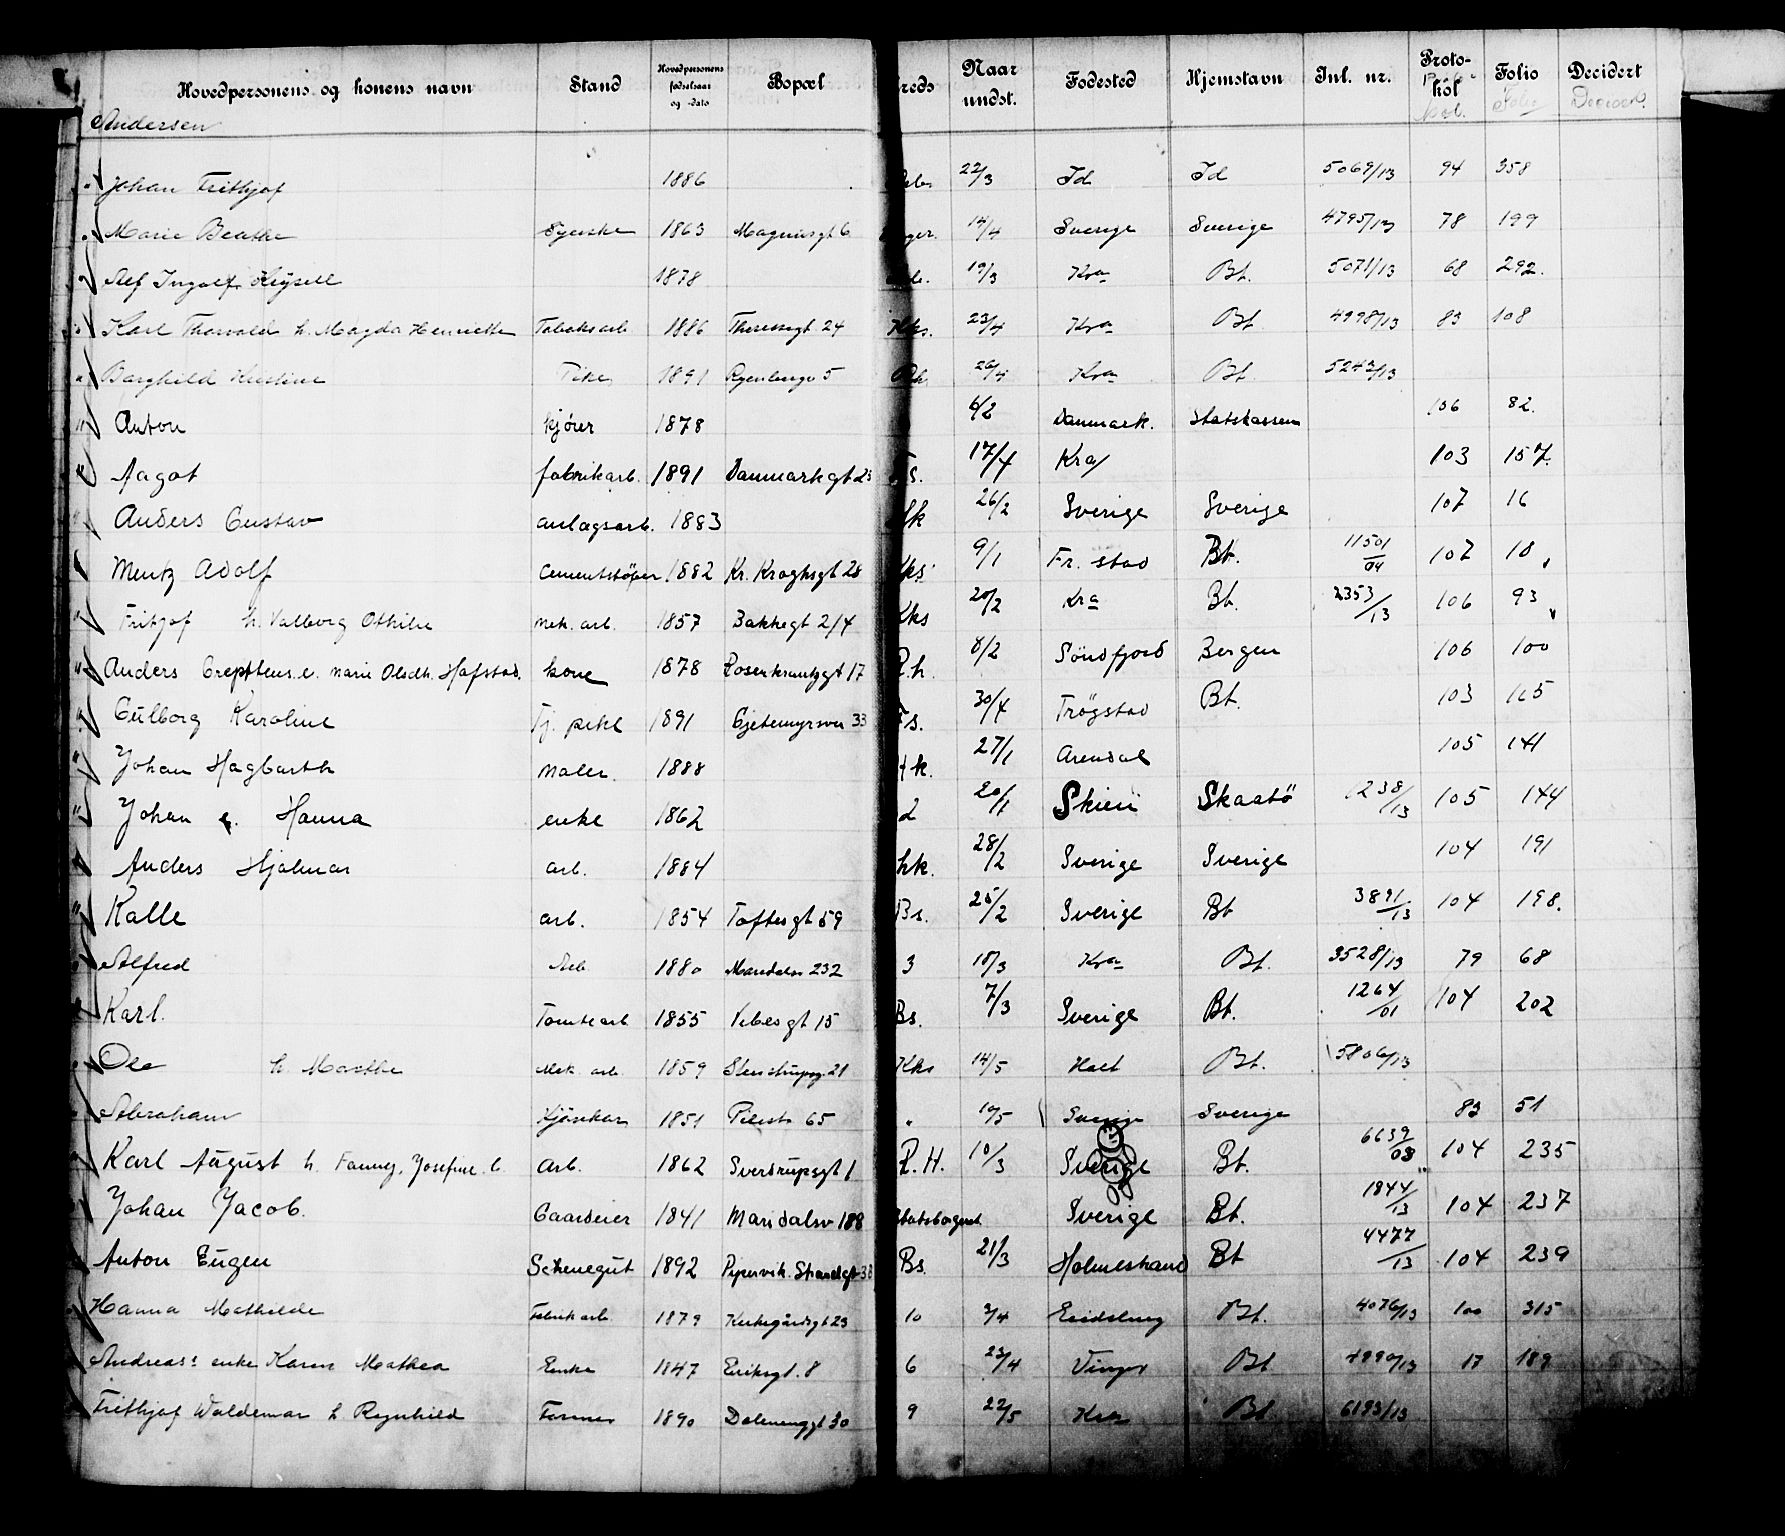 Hovedpersonens og konens navn Stand Hovedpersonens fødselsaar og -dato Bopæl reds Naar undst. Fødested Hjemstavn Inl. nr. Protokol Folio Decidert
Andersen Folio Decidert
" Johan Frithjof 1886 22/3 Id Id 5069/13 94 358
" Marie Beathe Syerske 1863 Magnusgt 6 14/4 Sverige Sverige 4795/13 78 199
" Alf Ingolf Keysell 1878 19/3 Kra Bt. 5071/13 68 292.
" Karl Thorvald h. Magda Henriette Tobaksarb 1886 Theresegt 24 Kks. 23/4 Kra Bt. 4998/13 83 108
" Borghild Kristine Pike 1891 Ryenberg 5 Rh 26/4 Kra Bt. 5242/13
" Anton kjører 1878 6/2 Danmark. Statskassen 106 82.
" Aagot fabrikarb. 1891 Danmarkgt 23 s. 17/4 Kra 103 157.
" Anders Gustav anlagsarb. 1883 k 26/2 Sverige Sverige 107 16
" Mentz Adolf Cementstøper 1882 Kr. Kroghsgt 28 Kks 9/1 Fr. stad Bt. 11501/04 107 18
" Fritjof h. Valborg Othilie mek. arb. 1857 Bakkegt 2/4 Kks 20/2 Kra Bt. 2353/13 106 93
" Anders e. Marie Olsdtr. Hofstad. kone 1878 Rosenkrantzgt 17 R.h. 8/2 Søndfjord Bergen 106 100
" Gulborg Karoline Tj. pike 1891 Gjetemyrsvei 33 s. 30/4 Trøgstad Bt. 103 165
" Johan Hagbarth Maler. 1888 k. 27/1 Arendal 105 141
" Johan e. Hanna enke 1862 2 20/1 Skien Skaatö 1238/13 105 144
" Anders Hjalmar arb. 1884 hk. 28/2 Sverige Sverige 104 191
" Kalle arb. 1854 Toftesgt 59 Bs. 25/2 Sverige Bt 3891/13 104 198.
" Alfred Arb 1880 Maridalsv 232 3 18/3 Kra Bt. 3528/13 79 68
" Karl. Tomtearb 1855 Vibesgt 15 Bs. 7/3 Sverige Bt. 1264/01 104 202
" Ole h Marthe Mek. arb 1859 Stenstrupsg. 21 Kks 14/5 Holt Bt. 5806/13
" Abraham Kjørekar 1851 Pilestr 65 " 10/5 Sverige Sverige 83 51
" Karl August h. Fanny, Josefine. C. arb. 1862 Sverdrupsgt 1 R.H. 10/3 Sverige Bt. 6639/08 104 235
Johan Jacob. Gaardeier 1841 Maridalsv 188 Statsborgerret Sverige Bt. 1844/13 104 237
Anton Eugen Schenegut 1892 Pipervik. Strandgt 33 Bs 21/3 Holmestrand Bt 4477/13 104 239
Hanna Mathilde Fabrikarb 1879 Kirkegårdsgt 23 10 3/4 Eidsberg Bt. 4076/13 100 315
Andreas's enke Karen Mathea Enke 1847 Eriksgt. 8 6 23/4 Vinger Bt 4990/13 17 189
Frithjof Waldemar h Ragnhild Former 1890 Dalenenggt 30 9 22/5 Kra Bt 6193/13